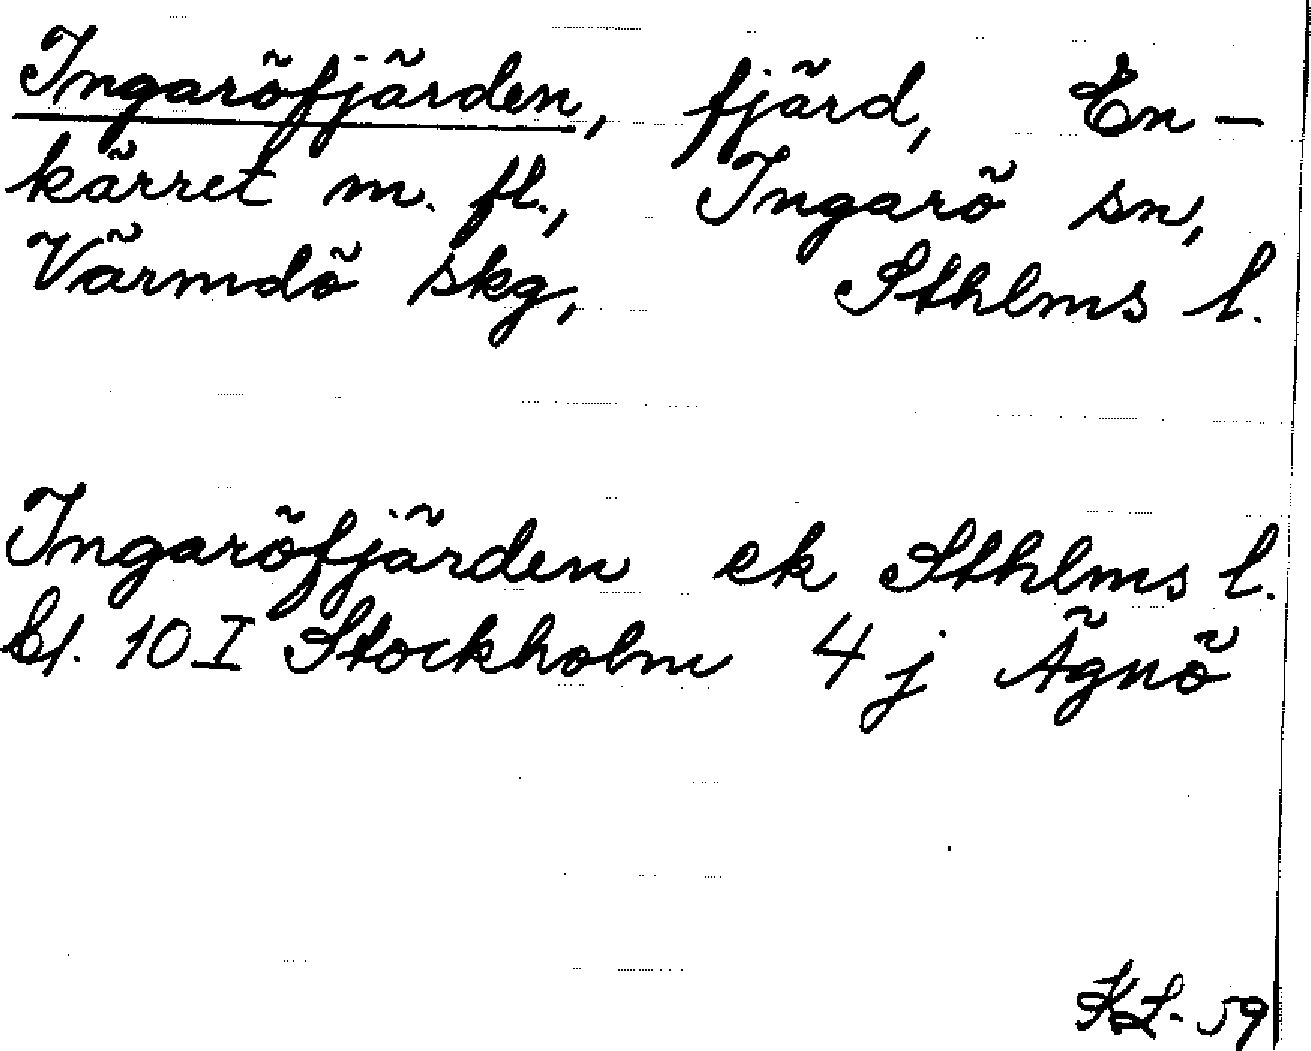 Ingaröfjärden, fjärd, En-
kärret m. fl., Ingarö sn,
Värmdö skg, Sthlms l.
Ingaröfjärden ek Sthlms l.
bl. 10 I Stockholm 4 j Ägnö
KL-59